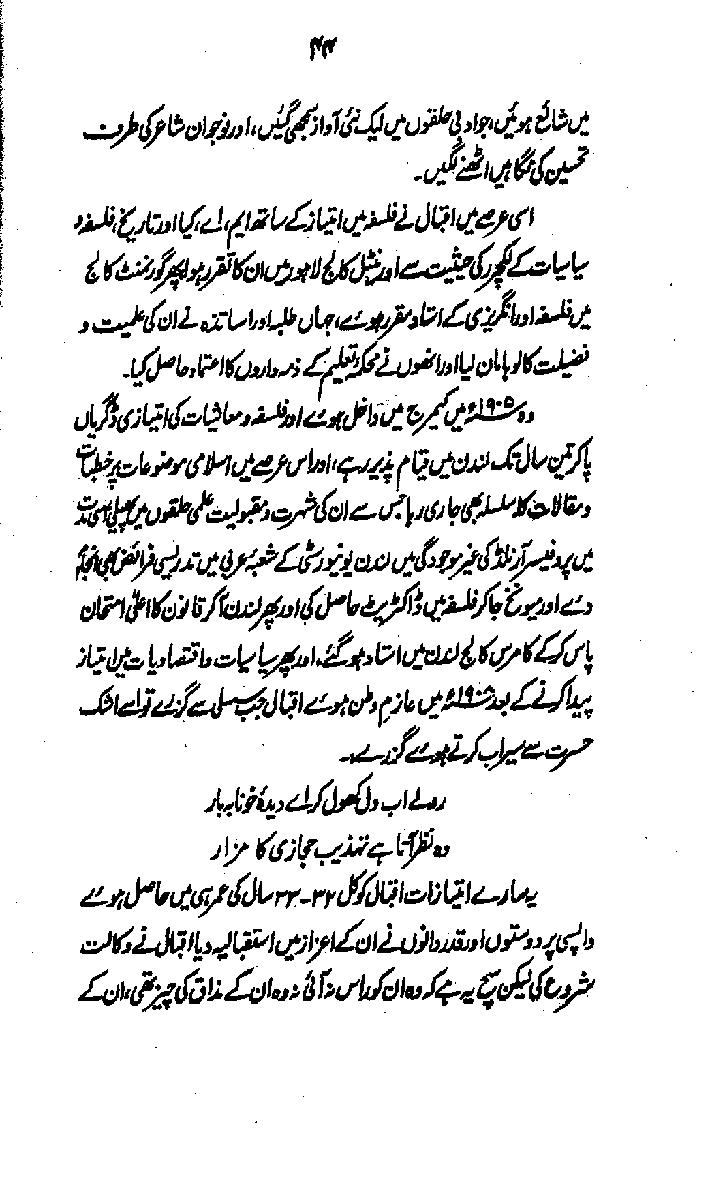 ۴۴
میں شائع ہوئیں، جو ادبی حلقوں میں ایک نئی آواز سمجھی گئیں، اور نوجوان شاعر کی طرف
تحسین کی نگاہیں اٹھنے لگیں۔
اسی عرصے میں اقبال نے فلسفہ میں امتیاز کے ساتھ ایم، اے، کیا اور تاریخ، فلسفہ و
سیاسیات کے لکچرر کی حیثیت سے اورینٹیل کالج لاہور میں ان کا تقرر ہوا پھر گورنمنٹ کالج
میں فلسفہ اور انگریزی کے استاد مقرر ہوئے، جہاں طلبہ اور اساتذہ نے ان کی علمیت و
فضیلت کا لوہا مان لیا اور انھوں نے محکمۂ تعلیم کے ذمہ داروں کا اعتماد حاصل کیا۔
وہ ۱۹۰۵ء میں کیمبرج میں داخل ہوئے اور فلسفہ و معاشیات کی امتیازی ڈگریاں
پاکر تین سال تک لندن میں قیام پذیر رہے، اور اس عرصے میں اسلامی موضوعات پر خطبات
و مقالات کا سلسلہ بھی جاری رہا جس سے ان کی شہرت و مقبولیت علمی حلقوں میں پھیلی اسی مدت
میں پروفیسر آرنلڈ کی غیر موجودگی میں لندن یونیورسٹی کے شعبۂ عربی میں تدریسی فرائض بھی انجام
دئے اور میونخ جاکر فلسفہ میں ڈاکٹریٹ حاصل کی اور پھر لندن آکر قانون کا اعلیٰ امتحان
پاس کرکے کامرس کالج لندن میں استاد ہوگئے، اور پھر سیاسیات و اقتصادیات میں امتیاز
پیدا کرنے کے بعد ۱۹۰۸ء میں عازم وطن ہوئے اقبال جب سسلی سے گزرے تو اسے اشک
حسرت سے سیراب کرتے ہوئے گزرے۔
رولے اب دل کھول کر اے دیدۂ خونابہ بار
وہ نظر آتا ہے تہذیب حجازی کا مزار
یہ سارے امتیازات اقبال کو کل ۳۲-۳۳ سال کی عمر ہی میں حاصل ہوئے
واپسی پر دوستوں اور قدر دانوں نے ان کے اعزاز میں استقبالیہ دیا اقبال نے وکالت
شروع کی لیکن سچ یہ ہے کہ وہ ان کو راس نہ آئی نہ وہ ان کے مذاق کی چیز تھی، ان کے